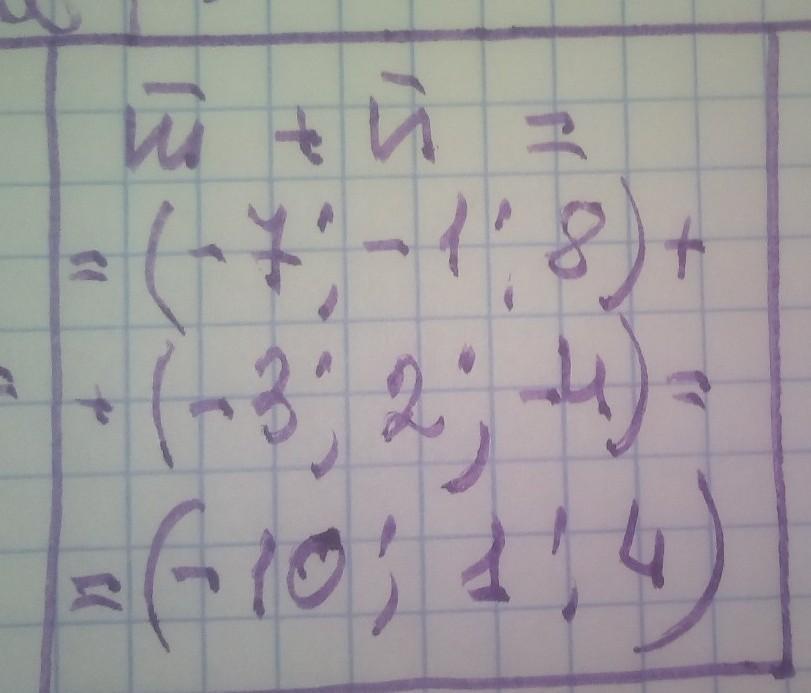 m̅ + n̅ =
= (-7; -1; 8) +
+ (-3; 2; -4) =
= (-10; 1; 4)